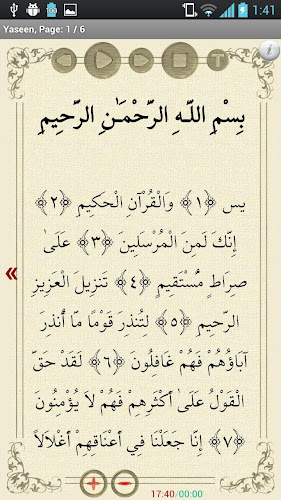 1:41
Yaseen, Page: 1 / 6
T
i
بِسْمِ اللَّـهِ الرَّحْمَـٰنِ الرَّحِيمِ
يس ﴿١﴾ وَالْقُرْآنِ الْحَكِيمِ ﴿٢﴾
إِنَّكَ لَمِنَ الْمُرْسَلِينَ ﴿٣﴾ عَلَىٰ
صِرَاطٍ مُّسْتَقِيمٍ ﴿٤﴾ تَنزِيلَ الْعَزِيزِ
الرَّحِيمِ ﴿٥﴾ لِتُنذِرَ قَوْمًا مَّا أُنذِرَ
آبَاؤُهُمْ فَهُمْ غَافِلُونَ ﴿٦﴾ لَقَدْ حَقَّ
الْقَوْلُ عَلَىٰ أَكْثَرِهِمْ فَهُمْ لَا يُؤْمِنُونَ
﴿٧﴾ إِنَّا جَعَلْنَا فِي أَعْنَاقِهِمْ أَغْلَالًا
17:40/00:00